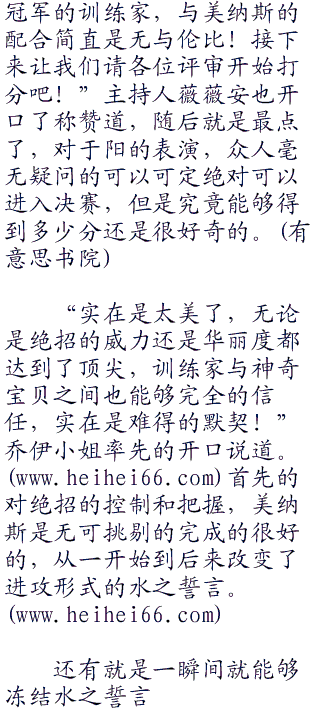 冠军的训练家，与美纳斯的
配合简直是无与伦比！接下
来让我们请各位评审开始打
分吧！”主持人薇薇安也开
口了称赞道，随后就是最点
了，对于阳的表演，众人毫
无疑问的可以可定绝对可以
进入决赛，但是究竟能够得
到多少分还是很好奇的。(有
意思书院)
“实在是太美了，无论
是绝招的威力还是华丽度都
达到了顶尖，训练家与神奇
宝贝之间也能够完全的信
任，实在是难得的默契！”
乔伊小姐率先的开口说道。
(www.heihei66.com)首先的
对绝招的控制和把握，美纳
斯是无可挑剔的完成的很好
的，从一开始到后来改变了
进攻形式的水之誓言。
(www.heihei66.com)
还有就是一瞬间就能够
冻结水之誓言